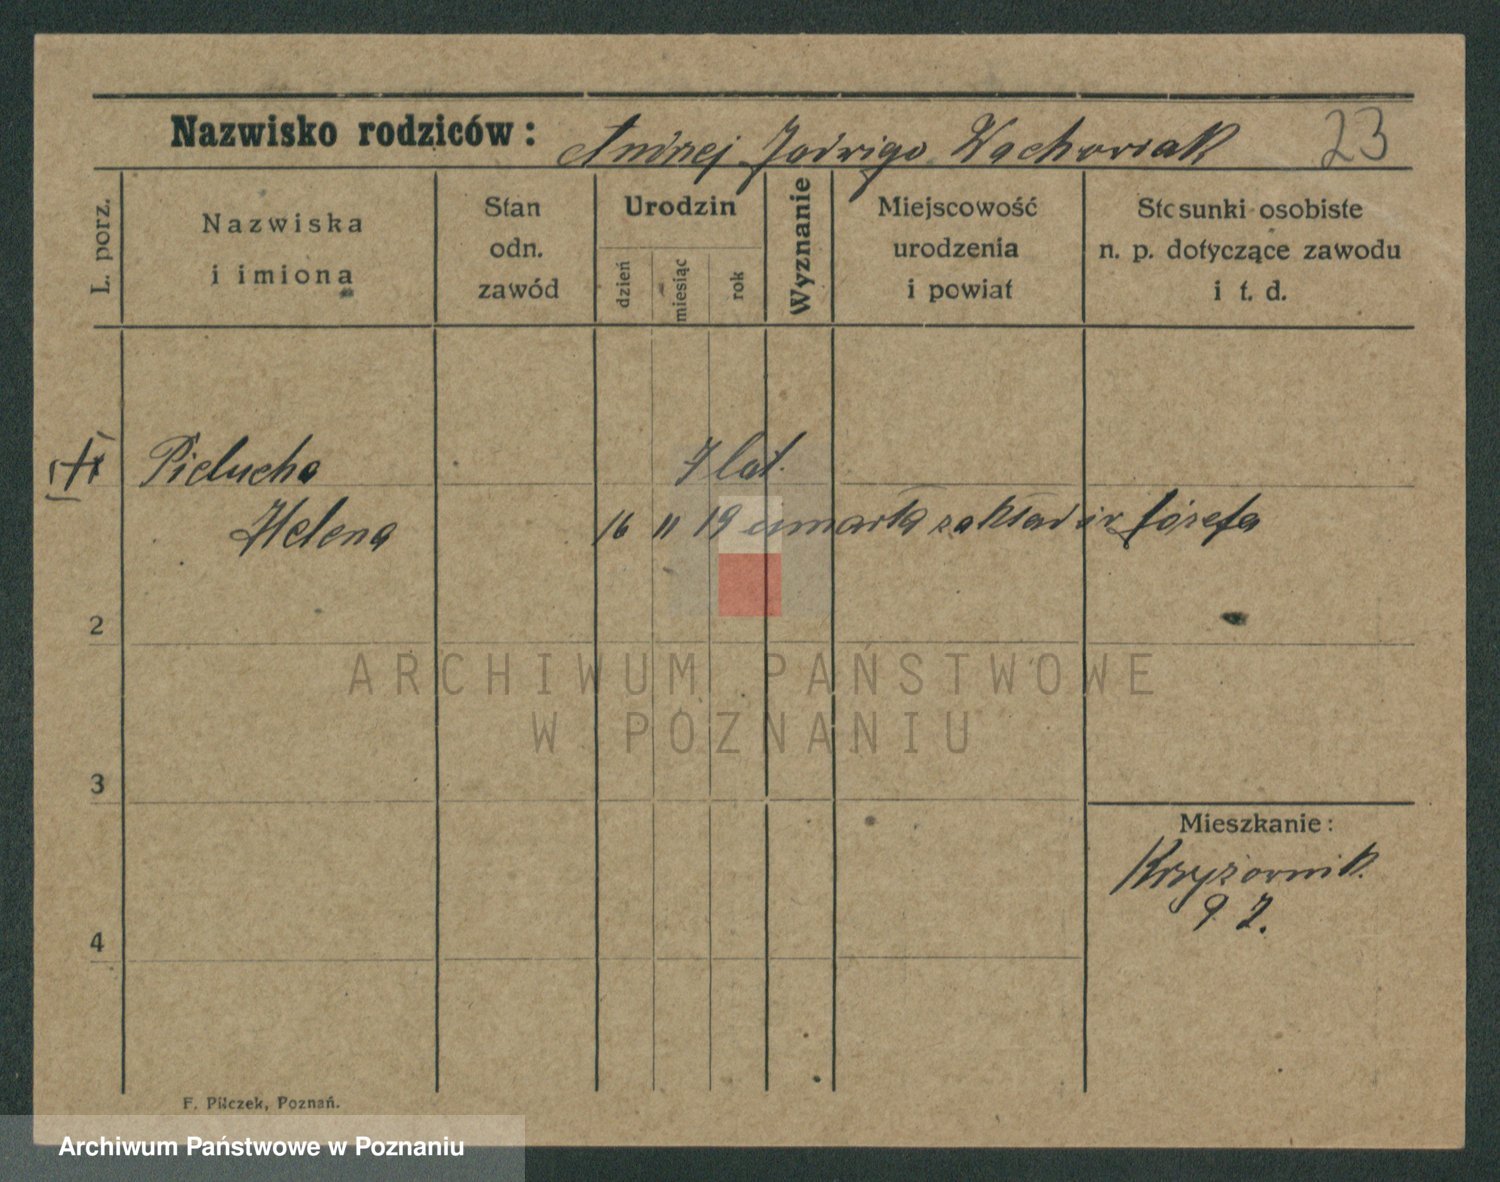 Nazwisko rodziców: Andrzej Jadwiga Wachowiak 23
L. porz.
Nazwiska
i imiona
Stan
odn.
zawód
Urodzin
dzień
miesiąc
rok
Wyznanie
Miejscowość
urodzenia
i powiat
Stosunki osobiste
n. p. dotyczące zawodu
i t. d.
Pielucha 7 lat.
Helena 16 11 19 umarła zakład św Józefa
2
3
4
Mieszkanie:
Krzyżownik.
92.
F. Pilczek, Poznań.
ARCHIWUM PAŃSTWOWE
W POZNANIU
Archiwum Państwowe w Poznaniu